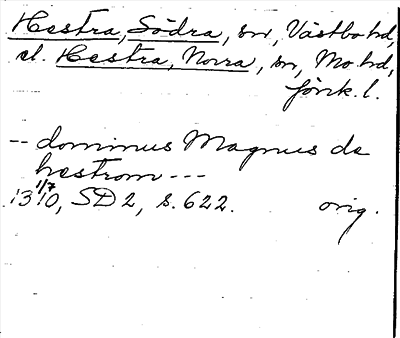 Hestra, Södra, sn, Västbo hd,
el. Hestra, Norra, sn, Mo hd,
Jönk. l.
-- dominus Magnus de
hestrom ---
1310 1/7, SD 2, s. 622. orig.